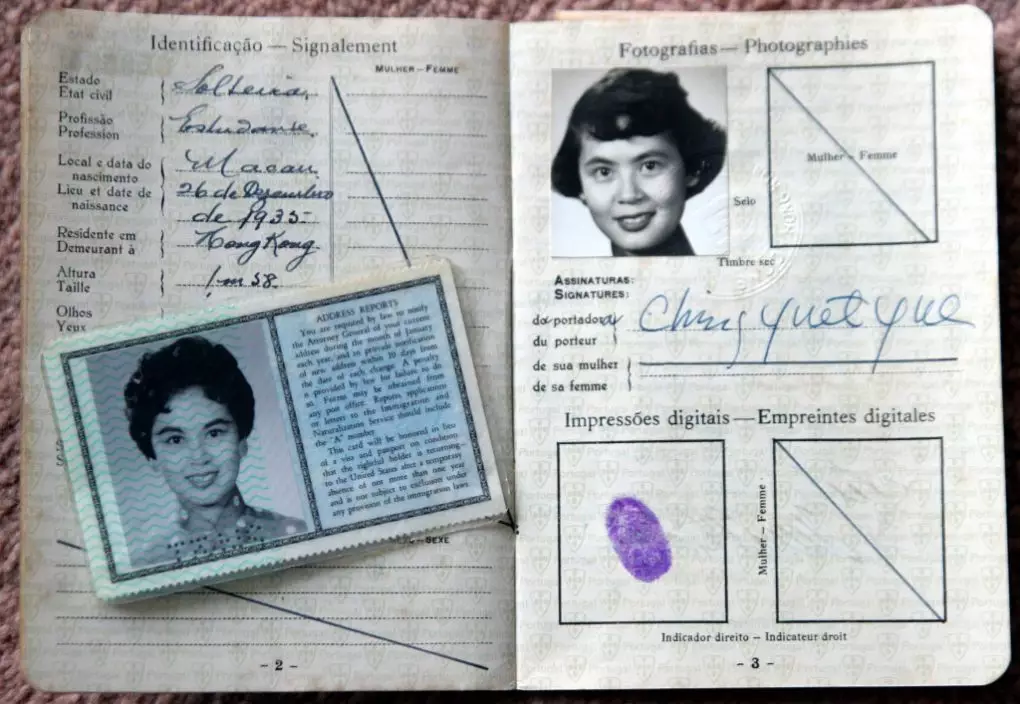 Identificação — Signalement
MULHER — FEMME
Estado
Etat civil
Solteira
Profissão
Profession
Estudante
Local e data do
nascimento
Macau
Lieu et date de
naissance
26 de Dezembro
de 1935
Residente em
Demeurant à
Hong Kong
Altura
Taille
1m 58
Olhos
Yeux
ADDRESS REPORTS
You are required by law to notify
the Attorney General of your current
address during the month of January
each year, and to provide notification
of new address within 10 days from
the date of such change. A penalty
is provided by law for failure to do
so. Forms may be obtained from
any post office. Reports applications
or letters to the Immigration and
Naturalization Service should include
the "A" number.
This card will be honored in lieu
of a visa and passport on condition
that the rightful holder is returning
to the United States after a temporary
absence of not more than one year
and is not subject to exclusion under
any provision of the immigration laws
SEXE
- 2 -
Fotografias — Photographies
Mulher - Femme
Selo
Timbre sec
ASSINATURAS:
SIGNATURES:
do portador
du porteur
Ching Yuet Yue
de sua mulher
de sa femme
Impressões digitais — Empreintes digitales
Mulher - Femme
Indicador direito - Indicateur droit
- 3 -